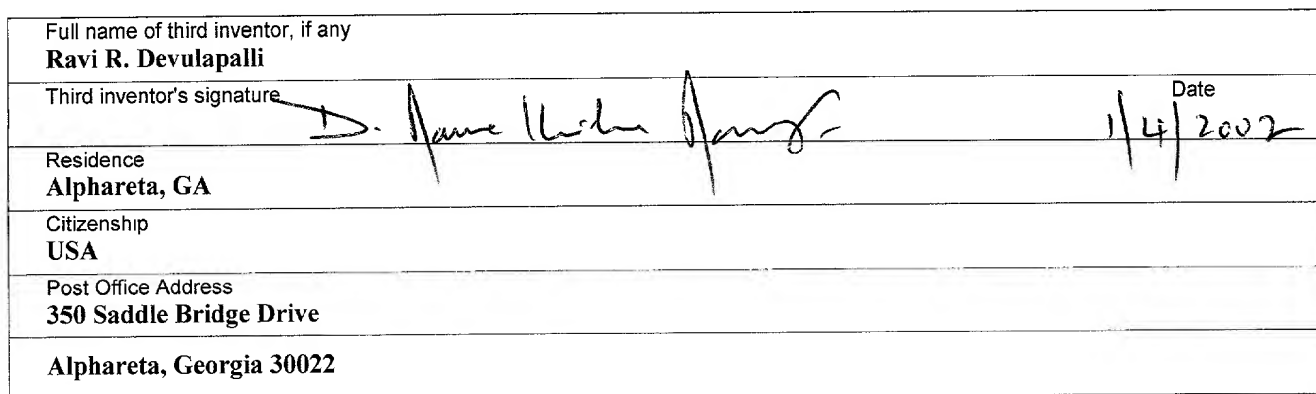 Full name of third inventor, if any
Ravi R. Devulapalli
Third inventor's signature
D.
Date
1/4/2002
Residence
Alphareta, GA
Citizenship
USA
Post Office Address
350 Saddle Bridge Drive
Alphareta, Georgia 30022